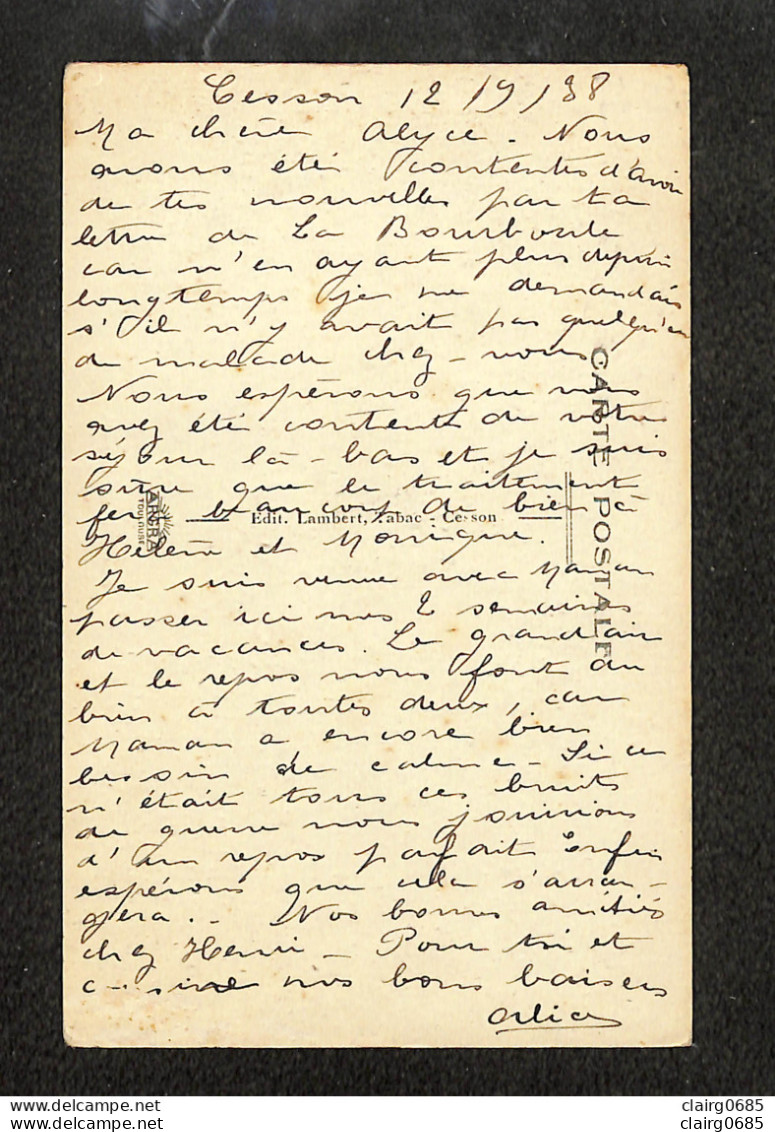 Cesson 12 / 9 / 38
Ma chère Alyce - Nous
avons été contentes d'avoir
de tes nouvelles par ta
lettre de La Bourboule
car n'en ayant plus depuis
longtemps je me demandais
s'il n'y avait pas quelqu'un
de malade chez - vous
Nous espérons que vous
avez été contents de votre
séjour là - bas et je suis
sûre que le traitement
fera beaucoup de bien à
Hélène et Monique.
Je suis venue avec Maman
passer ici nos 2 semaines
de vacances. Le grand air
et le repos nous font du
bien à toutes deux, car
Maman a encore bien
besoin de calme - Si ce
n'était tous ces bruits
de guerre nous jouirions
d'un repos parfait Enfin
espérons que cela s'arran-
gera. - Nos bonnes amitiés
chez Henri - Pour toi et
nos bons baisers
CARTE POSTALE
Edit. Lambert, Tabac - Cesson
TOULOUSE
clairg0685
clairg0685
delcampe.net
delcampe.net